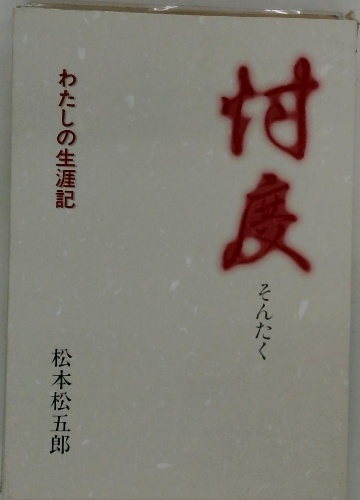 忖度
そんたく
わたしの生涯記
松本松五郎